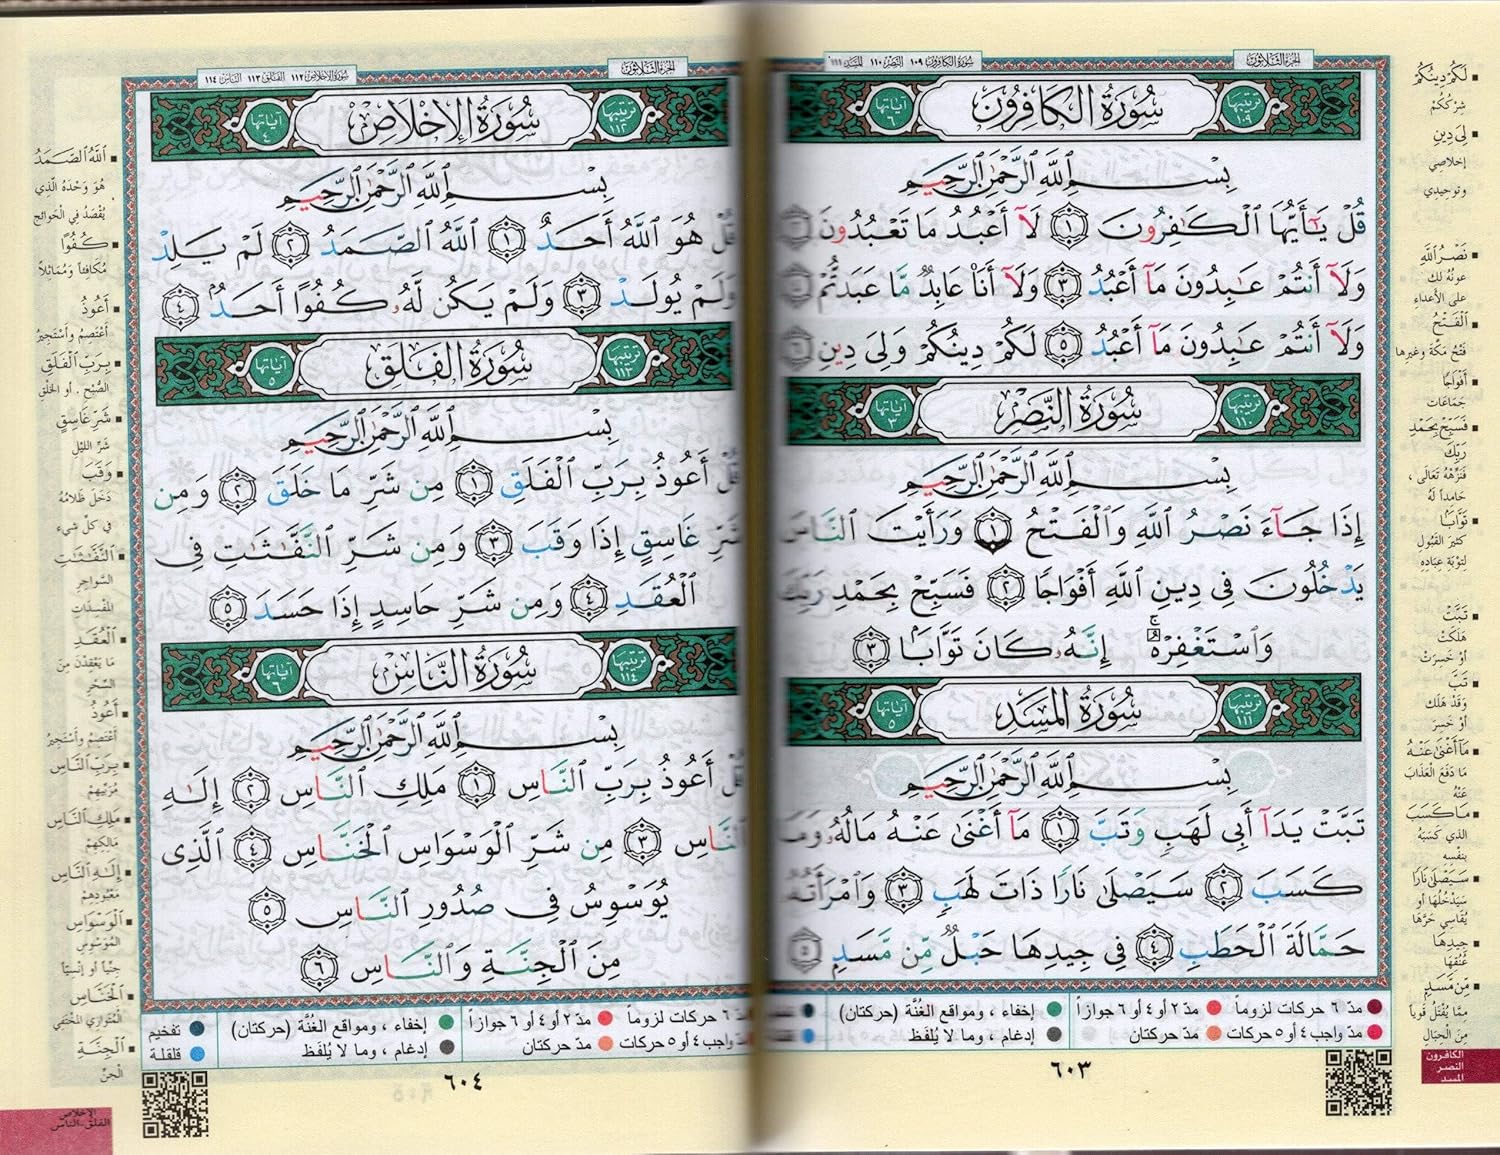 الجزء الثلاثون
سورة الكافرون ١٠٩ النصر ١١٠ المسد ١١١
ترتيبها ١٠٩ سُورَةُ الكَافِرُون آياتها ٦
بِسْمِ اللَّهِ الرَّحْمَٰنِ الرَّحِيمِ
قُلْ يَٰٓأَيُّهَا ٱلْكَٰفِرُونَ ١ لَآ أَعْبُدُ مَا تَعْبُدُونَ ٢
وَلَآ أَنتُمْ عَٰبِدُونَ مَآ أَعْبُدُ ٣ وَلَآ أَنَا۠ عَابِدٌ مَّا عَبَدتُّمْ ٤
وَلَآ أَنتُمْ عَٰبِدُونَ مَآ أَعْبُدُ ٥ لَكُمْ دِينُكُمْ وَلِىَ دِينِ ٦
ترتيبها ١١٠ سُورَةُ النَّصْر آياتها ٣
بِسْمِ اللَّهِ الرَّحْمَٰنِ الرَّحِيمِ
إِذَا جَآءَ نَصْرُ ٱللَّهِ وَٱلْفَتْحُ ١ وَرَأَيْتَ ٱلنَّاسَ
يَدْخُلُونَ فِى دِينِ ٱللَّهِ أَفْوَاجًا ٢ فَسَبِّحْ بِحَمْدِ رَبِّكَ
وَٱسْتَغْفِرْهُ ۚ إِنَّهُۥ كَانَ تَوَّابًۢا ٣
ترتيبها ١١١ سُورَةُ المَسَد آياتها ٥
بِسْمِ اللَّهِ الرَّحْمَٰنِ الرَّحِيمِ
تَبَّتْ يَدَآ أَبِى لَهَبٍ وَتَبَّ ١ مَآ أَغْنَىٰ عَنْهُ مَالُهُۥ وَمَا
كَسَبَ ٢ سَيَصْلَىٰ نَارًا ذَاتَ لَهَبٍ ٣ وَٱمْرَأَتُهُۥ
حَمَّالَةَ ٱلْحَطَبِ ٤ فِى جِيدِهَا حَبْلٌ مِّن مَّسَدٍۭ ٥
لَكُمْ دِينُكُمْ
شِرْكُكُمْ
لِيَ دِينِ
إخلاصي
وتوحيدي
نَصْرُ اللَّهِ
عونُهُ لك
على الأعداء
الْفَتْحُ
فَتْحُ مكّة وغيرها
أَفْوَاجًا
جَمَاعَات
فَسَبِّحْ بِحَمْدِ
رَبِّكَ
فَنَزِّهْهُ تَعَالَى ،
حَامِداً لَهُ
تَوَّابًا
كثيرَ القَبُول
لِتَوْبَةِ عِبَادِه
تَبَّتْ
هَلَكَتْ
أوْ خَسِرَتْ
تَبَّ
وَقَدْ هَلَك
أوْ خَسِرَ
مَا أَغْنَىٰ عَنْهُ
مَا دَفَعَ الْعَذَابَ
عَنْهُ
مَا كَسَبَ
الذي كَسَبَهُ
بنفْسِه
سَيَصْلَىٰ نَارًا
سَيَدْخُلُهَا أو
يُقَاسِي حَرَّهَا
جِيدِهَا
عُنُقِهَا
مِّن مَّسَدٍ
مِمَّا يُفْتَلُ قوياً
مِنَ الْحِبَالِ
مدّ ٦ حركات لزوماً مدّ ٢ أو ٤ أو ٦ جوازاً إخفاء ، ومواقع الغُنَّة (حركتان)
مدّ واجب ٤ أو ٥ حركات مدّ حركتان إدغام ، وما لا يُلفَظ
٦٠٣
الكافرون
النصر
المسد
الجزء الثلاثون
سورة الإخلاص ١١٢ الفلق ١١٣ الناس ١١٤
ترتيبها ١١٢ سُورَةُ الإِخْلَاص آياتها ٤
بِسْمِ اللَّهِ الرَّحْمَٰنِ الرَّحِيمِ
قُلْ هُوَ ٱللَّهُ أَحَدٌ ١ ٱللَّهُ ٱلصَّمَدُ ٢ لَمْ يَلِدْ
وَلَمْ يُولَدْ ٣ وَلَمْ يَكُن لَّهُۥ كُفُوًا أَحَدٌۢ ٤
ترتيبها ١١٣ سُورَةُ الفَلَق آياتها ٥
بِسْمِ اللَّهِ الرَّحْمَٰنِ الرَّحِيمِ
قُلْ أَعُوذُ بِرَبِّ ٱلْفَلَقِ ١ مِن شَرِّ مَا خَلَقَ ٢ وَمِن
شَرِّ غَاسِقٍ إِذَا وَقَبَ ٣ وَمِن شَرِّ ٱلنَّفَّٰثَٰتِ فِى
ٱلْعُقَدِ ٤ وَمِن شَرِّ حَاسِدٍ إِذَا حَسَدَ ٥
ترتيبها ١١٤ سُورَةُ النَّاس آياتها ٦
بِسْمِ اللَّهِ الرَّحْمَٰنِ الرَّحِيمِ
قُلْ أَعُوذُ بِرَبِّ ٱلنَّاسِ ١ مَلِكِ ٱلنَّاسِ ٢ إِلَٰهِ
ٱلنَّاسِ ٣ مِن شَرِّ ٱلْوَسْوَاسِ ٱلْخَنَّاسِ ٤ ٱلَّذِى
يُوَسْوِسُ فِى صُدُورِ ٱلنَّاسِ ٥
مِنَ ٱلْجِنَّةِ وَٱلنَّاسِ ٦
اللَّهُ الصَّمَدُ
هُوَ وَحْدَهُ الَّذِي
يُقْصَدُ فِي الْحَوائِجِ
كُفُوًا
مُكَافِئاً وَمُمَاثِلاً
أَعُوذُ
أَعْتَصِمُ وأَسْتَجِيرُ
بِرَبِّ الْفَلَقِ
الصُّبْحِ . أو الخَلْقِ
شَرِّ غَاسِقٍ
شَرِّ اللَّيْلِ
وَقَبَ
دَخَلَ ظَلَامُهُ
في كلِّ شيء
النَّفَّٰثَٰتِ
السَّواحِرِ
المُفْسِدَاتِ
الْعُقَدِ
مَا يَعْقِدْنَ مِنَ
السِّحْرِ
أَعُوذُ
أَعْتَصِمُ وأَسْتَجِيرُ
بِرَبِّ النَّاسِ
مُرَبِّيهِمْ
مَلِكِ النَّاسِ
مَالِكِهِمْ
إِلَٰهِ النَّاسِ
مَعْبُودِهِمْ
الْوَسْوَاسِ
المُوَسْوِسِ
جِنِّياً أو إنْسِيّاً
الْخَنَّاسِ
الْمُتَوَارِي المُخْتَفِي
الْجِنَّةِ
الجِنِّ
مدّ ٦ حركات لزوماً مدّ ٢ أو ٤ أو ٦ جوازاً إخفاء ، ومواقع الغُنَّة (حركتان) تفخيم
مدّ واجب ٤ أو ٥ حركات مدّ حركتان إدغام ، وما لا يُلفَظ قلقلة
٦٠٤
الإخلاص
الفلق-الناس